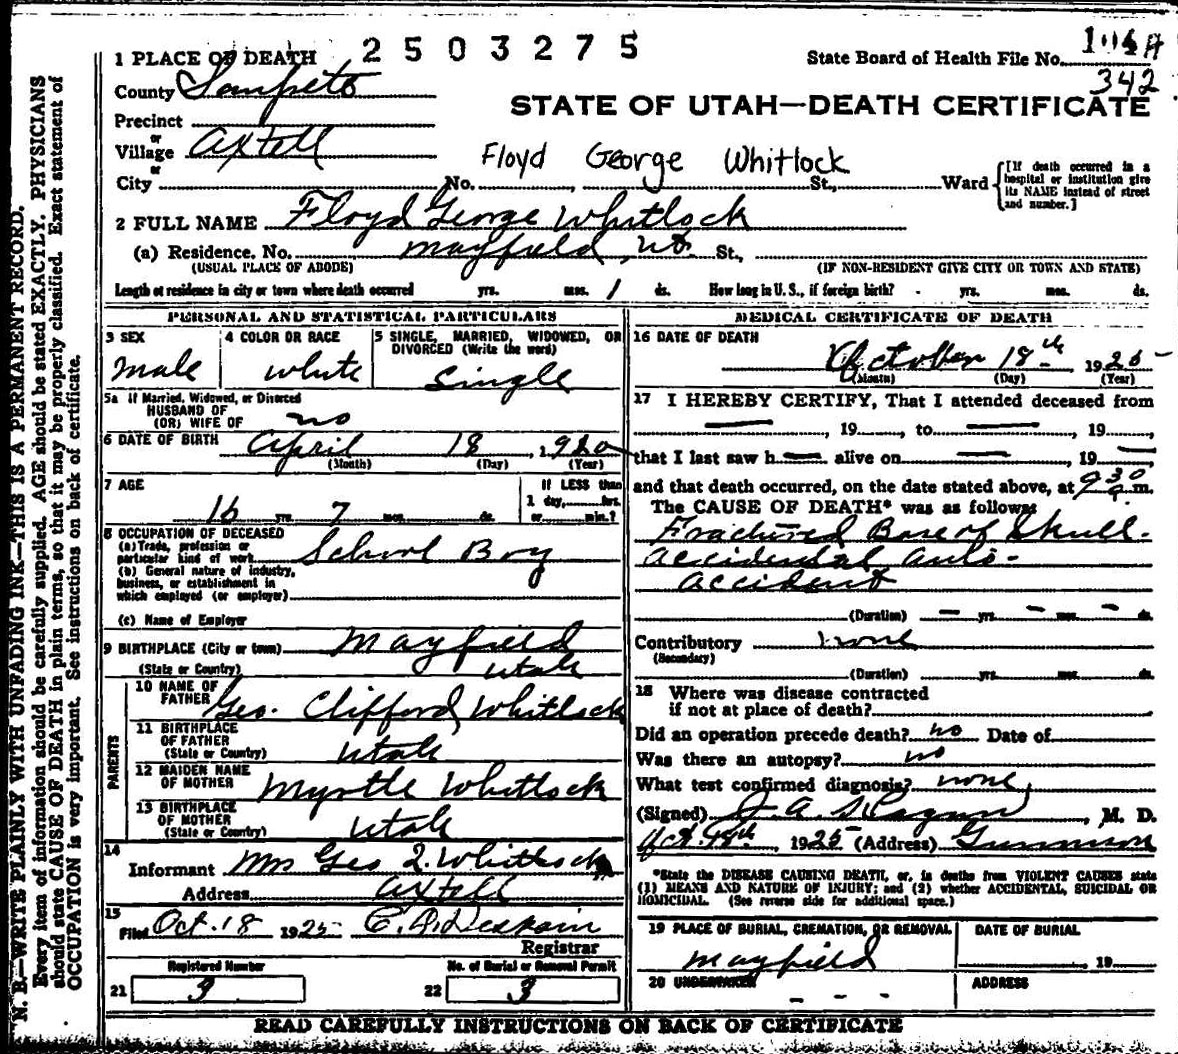 1 PLACE OF DEATH 2503275 State Board of Health File No.
342
County Sanpete
STATE OF UTAH—DEATH CERTIFICATE
Precinct
or
Village Axtell
or
Floyd George Whitlock
City No. St., Ward
[If death occurred in a hospital or institution give its NAME instead of street and number.]
2 FULL NAME Floyd George Whitlock
(a) Residence. No. Mayfield, Ut. St.,
(USUAL PLACE OF ABODE) (IF NON-RESIDENT GIVE CITY OR TOWN AND STATE)
Length of residence in city or town where death occurred yrs. mos. 1 ds. How long in U. S., if foreign birth? - yrs. mos. ds.
PERSONAL AND STATISTICAL PARTICULARS
3 SEX 4 COLOR OR RACE 5 SINGLE, MARRIED, WIDOWED, OR
DIVORCED (Write the word)
Male White Single
5a If Married, Widowed, or Divorced
HUSBAND OF
(OR) WIFE OF no
6 DATE OF BIRTH April 18, 19
(Month) (Day) (Year)
7 AGE If LESS than
1 day, hrs.
16 yrs. 7 mos. ds. or min.?
8 OCCUPATION OF DECEASED
(a) Trade, profession or
particular kind of work School Boy
(b) General nature of industry,
business, or establishment in
which employed (or employer)
(c) Name of Employer
9 BIRTHPLACE (City or town) Mayfield
(State or Country) Utah
PARENTS
10 NAME OF
FATHER Geo. Clifford Whitlock
11 BIRTHPLACE
OF FATHER
(State or Country) Utah
12 MAIDEN NAME
OF MOTHER Myrtle Whitlock
13 BIRTHPLACE
OF MOTHER
(State or Country) Utah
14
Informant Mrs Geo Whitlock
Address Axtell
15
Filed Oct. 18 1925
Registrar
Registered Number No. of Burial or Removal Permit
21 3 22 3
MEDICAL CERTIFICATE OF DEATH
16 DATE OF DEATH
October 18th 1925
(Month) (Day) (Year)
17 I HEREBY CERTIFY, That I attended deceased from
—, 19 , to —, 19 ,
that I last saw h— alive on —, 19 —
and that death occurred, on the date stated above, at 9 30 a.m.
The CAUSE OF DEATH* was as follows
Fractured Base of Skull.
accidental auto-
accident
(Duration) — yrs. - mos. - ds.
Contributory none
(Secondary)
(Duration) yrs. mos. ds.
18 Where was disease contracted
if not at place of death?
Did an operation precede death? no Date of
Was there an autopsy? no
What test confirmed diagnosis? none
(Signed) J. A. , M. D.
Oct. 18th, 1925 (Address) Gunnison
*State the DISEASE CAUSING DEATH, or, in deaths from VIOLENT CAUSES state
(1) MEANS AND NATURE OF INJURY; and (2) whether ACCIDENTAL, SUICIDAL OR
HOMICIDAL. (See reverse side for additional space.)
19 PLACE OF BURIAL, CREMATION, OR REMOVAL DATE OF BURIAL
Mayfield , 19
20 UNDERTAKER ADDRESS
- - -
READ CAREFULLY INSTRUCTIONS ON BACK OF CERTIFICATE
N. B.—WRITE PLAINLY WITH UNFADING INK—THIS IS A PERMANENT RECORD.
Every item of information should be carefully supplied. AGE should be stated EXACTLY. PHYSICIANS
should state CAUSE OF DEATH in plain terms, so that it may be properly classified. Exact statement of
OCCUPATION is very important. See instructions on back of certificate.